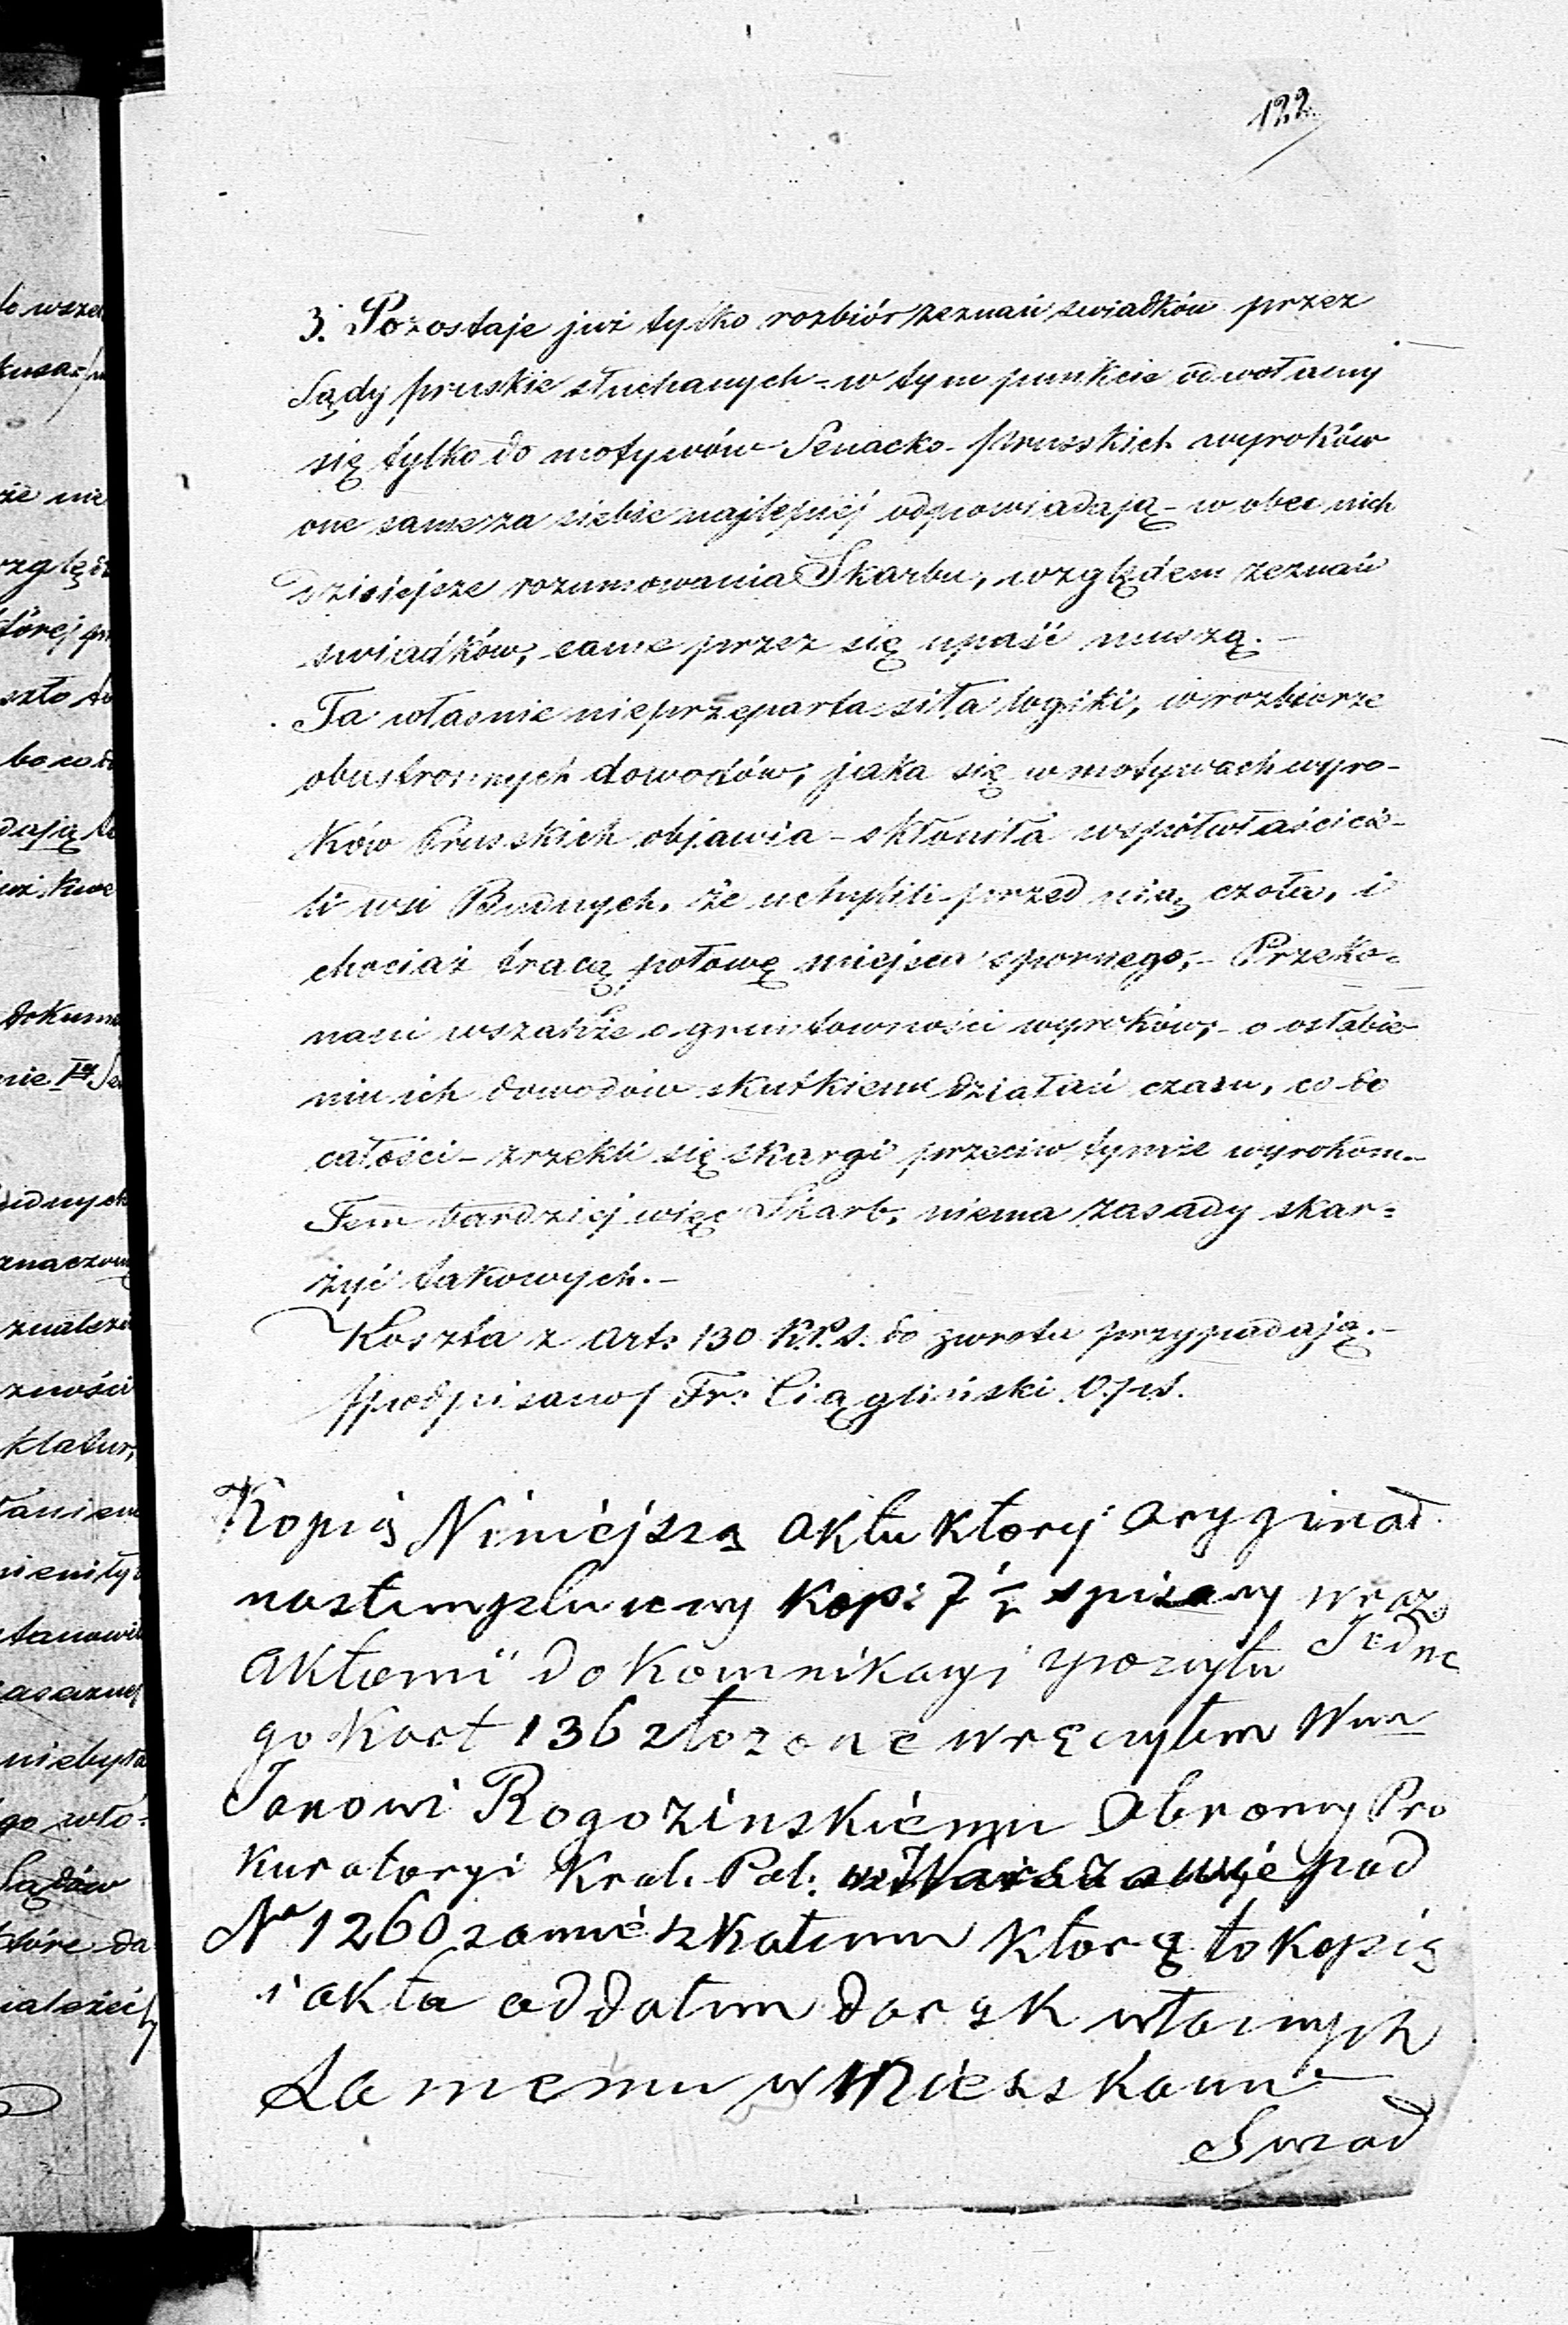 122
3. Pozostaje już tylko rozbiór zeznań swiadków przez
Sądy pruskie słuchanych - w tym punkcie odwołamy
się tylko do motywów Senacko-Prusskich wyroków
one same za siebie najlepiej odpowiadają - w obec nich
dzisiejsze rozumowania Skarbu, względem zeznań
swiadków, same przez się upaść muszą. -
Ta własnie nieprzeparta siła logiki, w rozbiorze
obustronnych dowodów, jaka się w motywach wyro-
ków Prusskich objawia - skłoniła współwłaścicie-
li wsi Budnych, że uchylili przed nią czoła, i
chociaż tracą połowę miejsca spornego, - Przeko-
nani wszakże o gruntowności wyroków, - o osłabie-
niu ich dowodów skutkiem działań czasu, co do
całości - zrzekli się skargi przeciw tymże wyrokom. -
Tem bardziej więc Skarb, niema zasady skar-
żyć takowych. -
Koszta z art: 130 K.P.S. do zwrotu przypadają. -
/podpisano/ Fr: Ciągliński
Kopią Niniejszą aktu ktory oryginał
nastemplu ceny kop: 7 ½ spisany wraz
aktami do Komnikacyi zpozwytu Jedne
go Kart 136 złozone wręczyłem Wmu
Janowi Rogozinskiemu Obroncy Pro
kuratoryi Krol. Pol: w Warszawie pod
No 1260 zamieszkałemu ktorą to kopią
i akta oddałem do rąk własnych
Samemu w Mieszkaniu